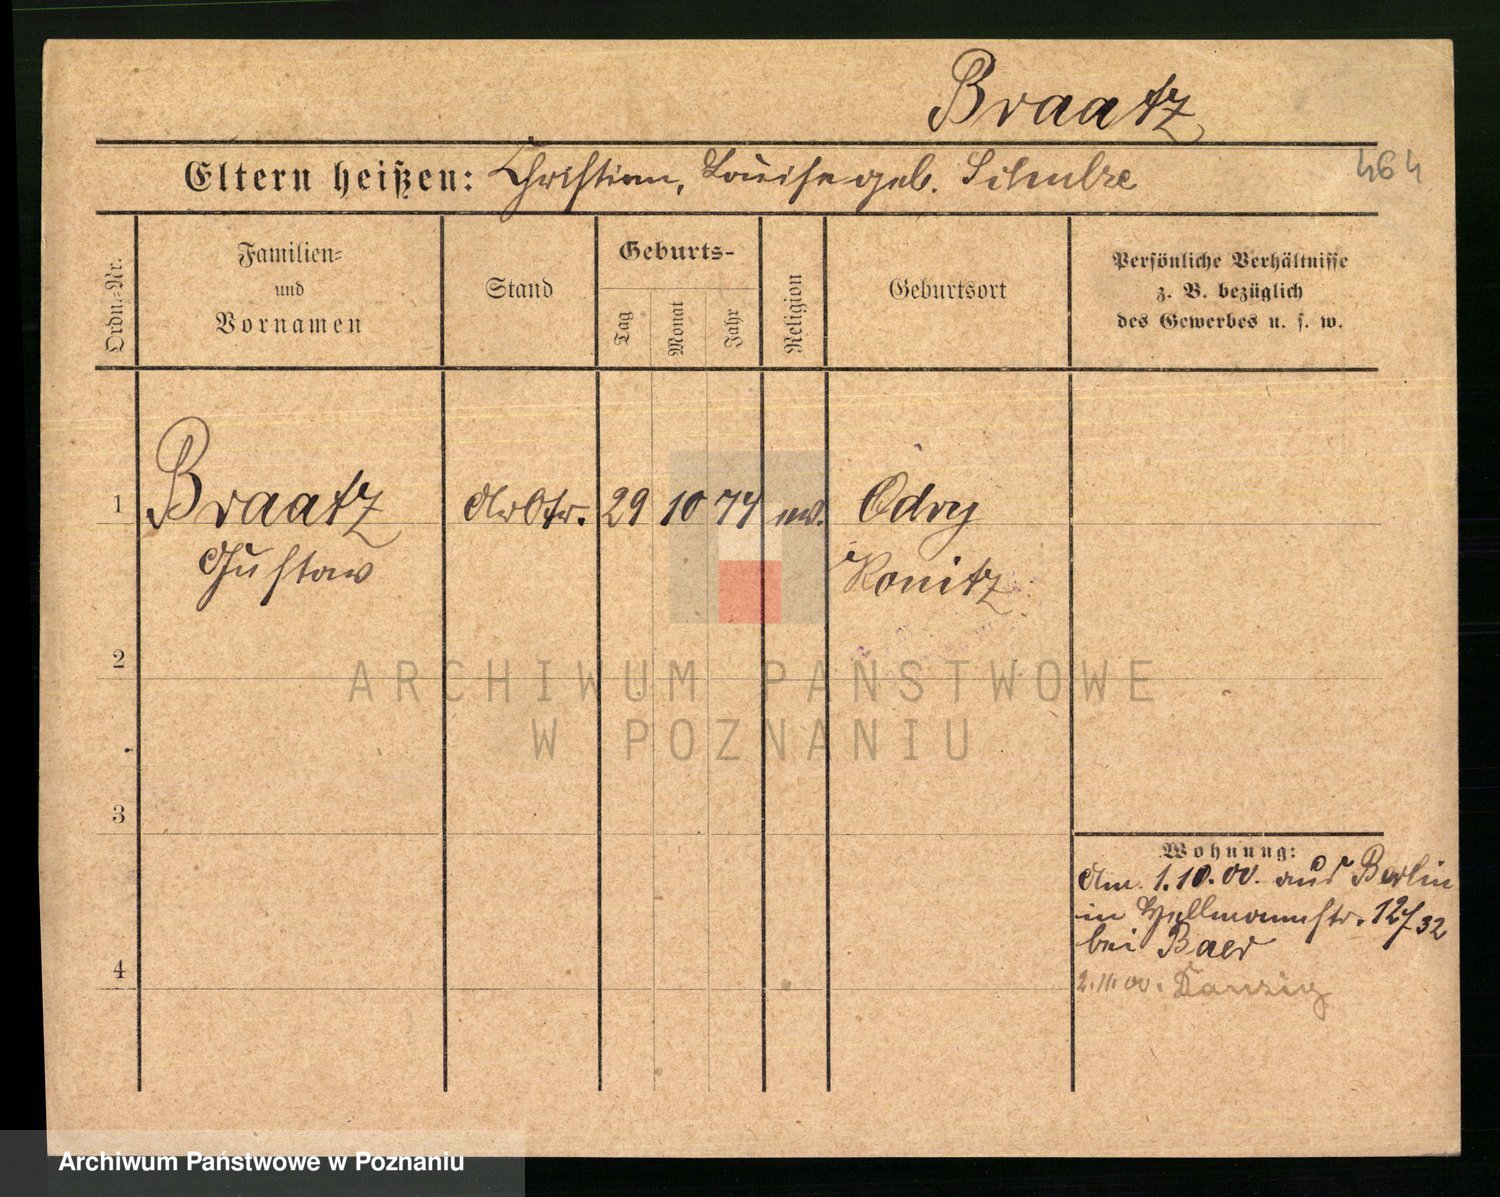 Braatz
Eltern heißen: Christian, Louise geb. Schulze
464
Ordn.-Nr.
Familien-
und
Vornamen
Stand
Geburts-
Tag
Monat
Jahr
Religion
Geburtsort
Persönliche Verhältnisse
z. B. bezüglich
des Gewerbes u. s. w.
1
Braatz
Gustav
Arbtr.
29
10
74
ev.
Odry
Konitz
2
ARCHIWUM PAŃSTWOWE
W POZNANIU
3
4
Wohnung:
Am 1.10.00. aus Berlin
in Hellmannstr. 12/32
bei Baer
2.11.00. Danzig
Archiwum Państwowe w Poznaniu